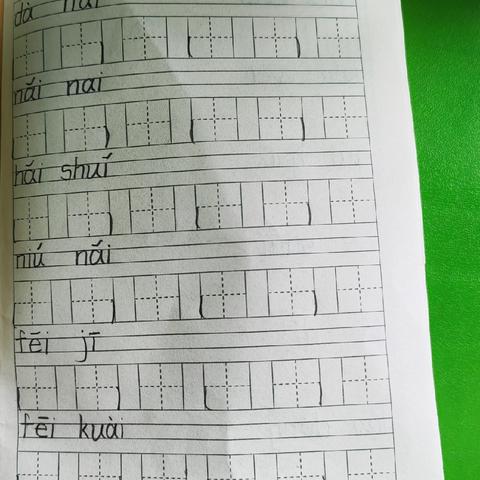 dà hǎi
nǎi nai
hǎi shuǐ
niú nǎi
fēi jī
fēi kuài